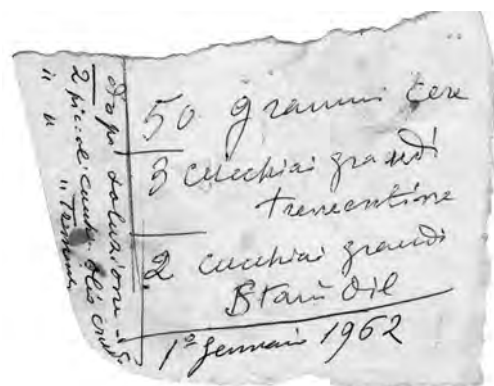 50 grammi cera
3 cucchiai grandi
trementina
2 cucchiai grandi
Stain Oil
1º Gennaio 1962
dopo soluzione
2 piccoli cucch. Olio crudo
" " "